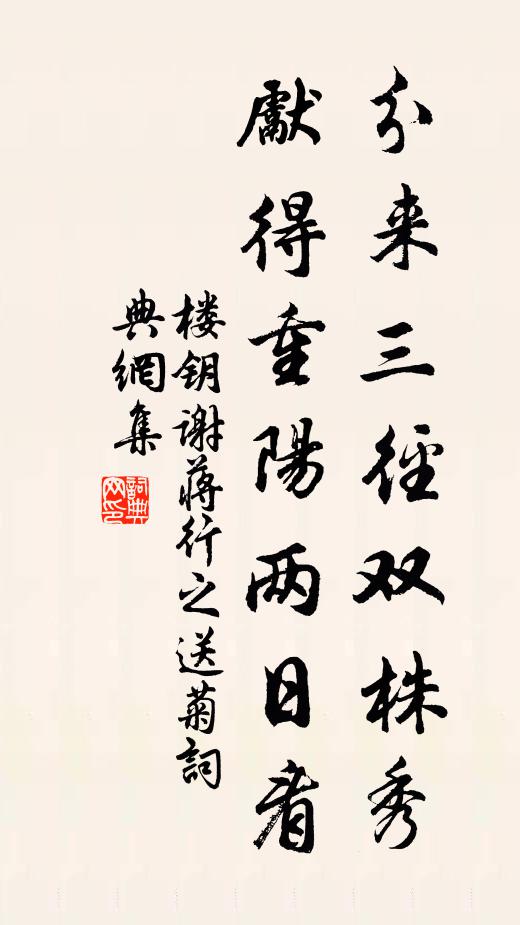 分来三径双株秀
獻得重陽两日看
楼钥谢蒋行之送菊詞
典網集
詞典网印